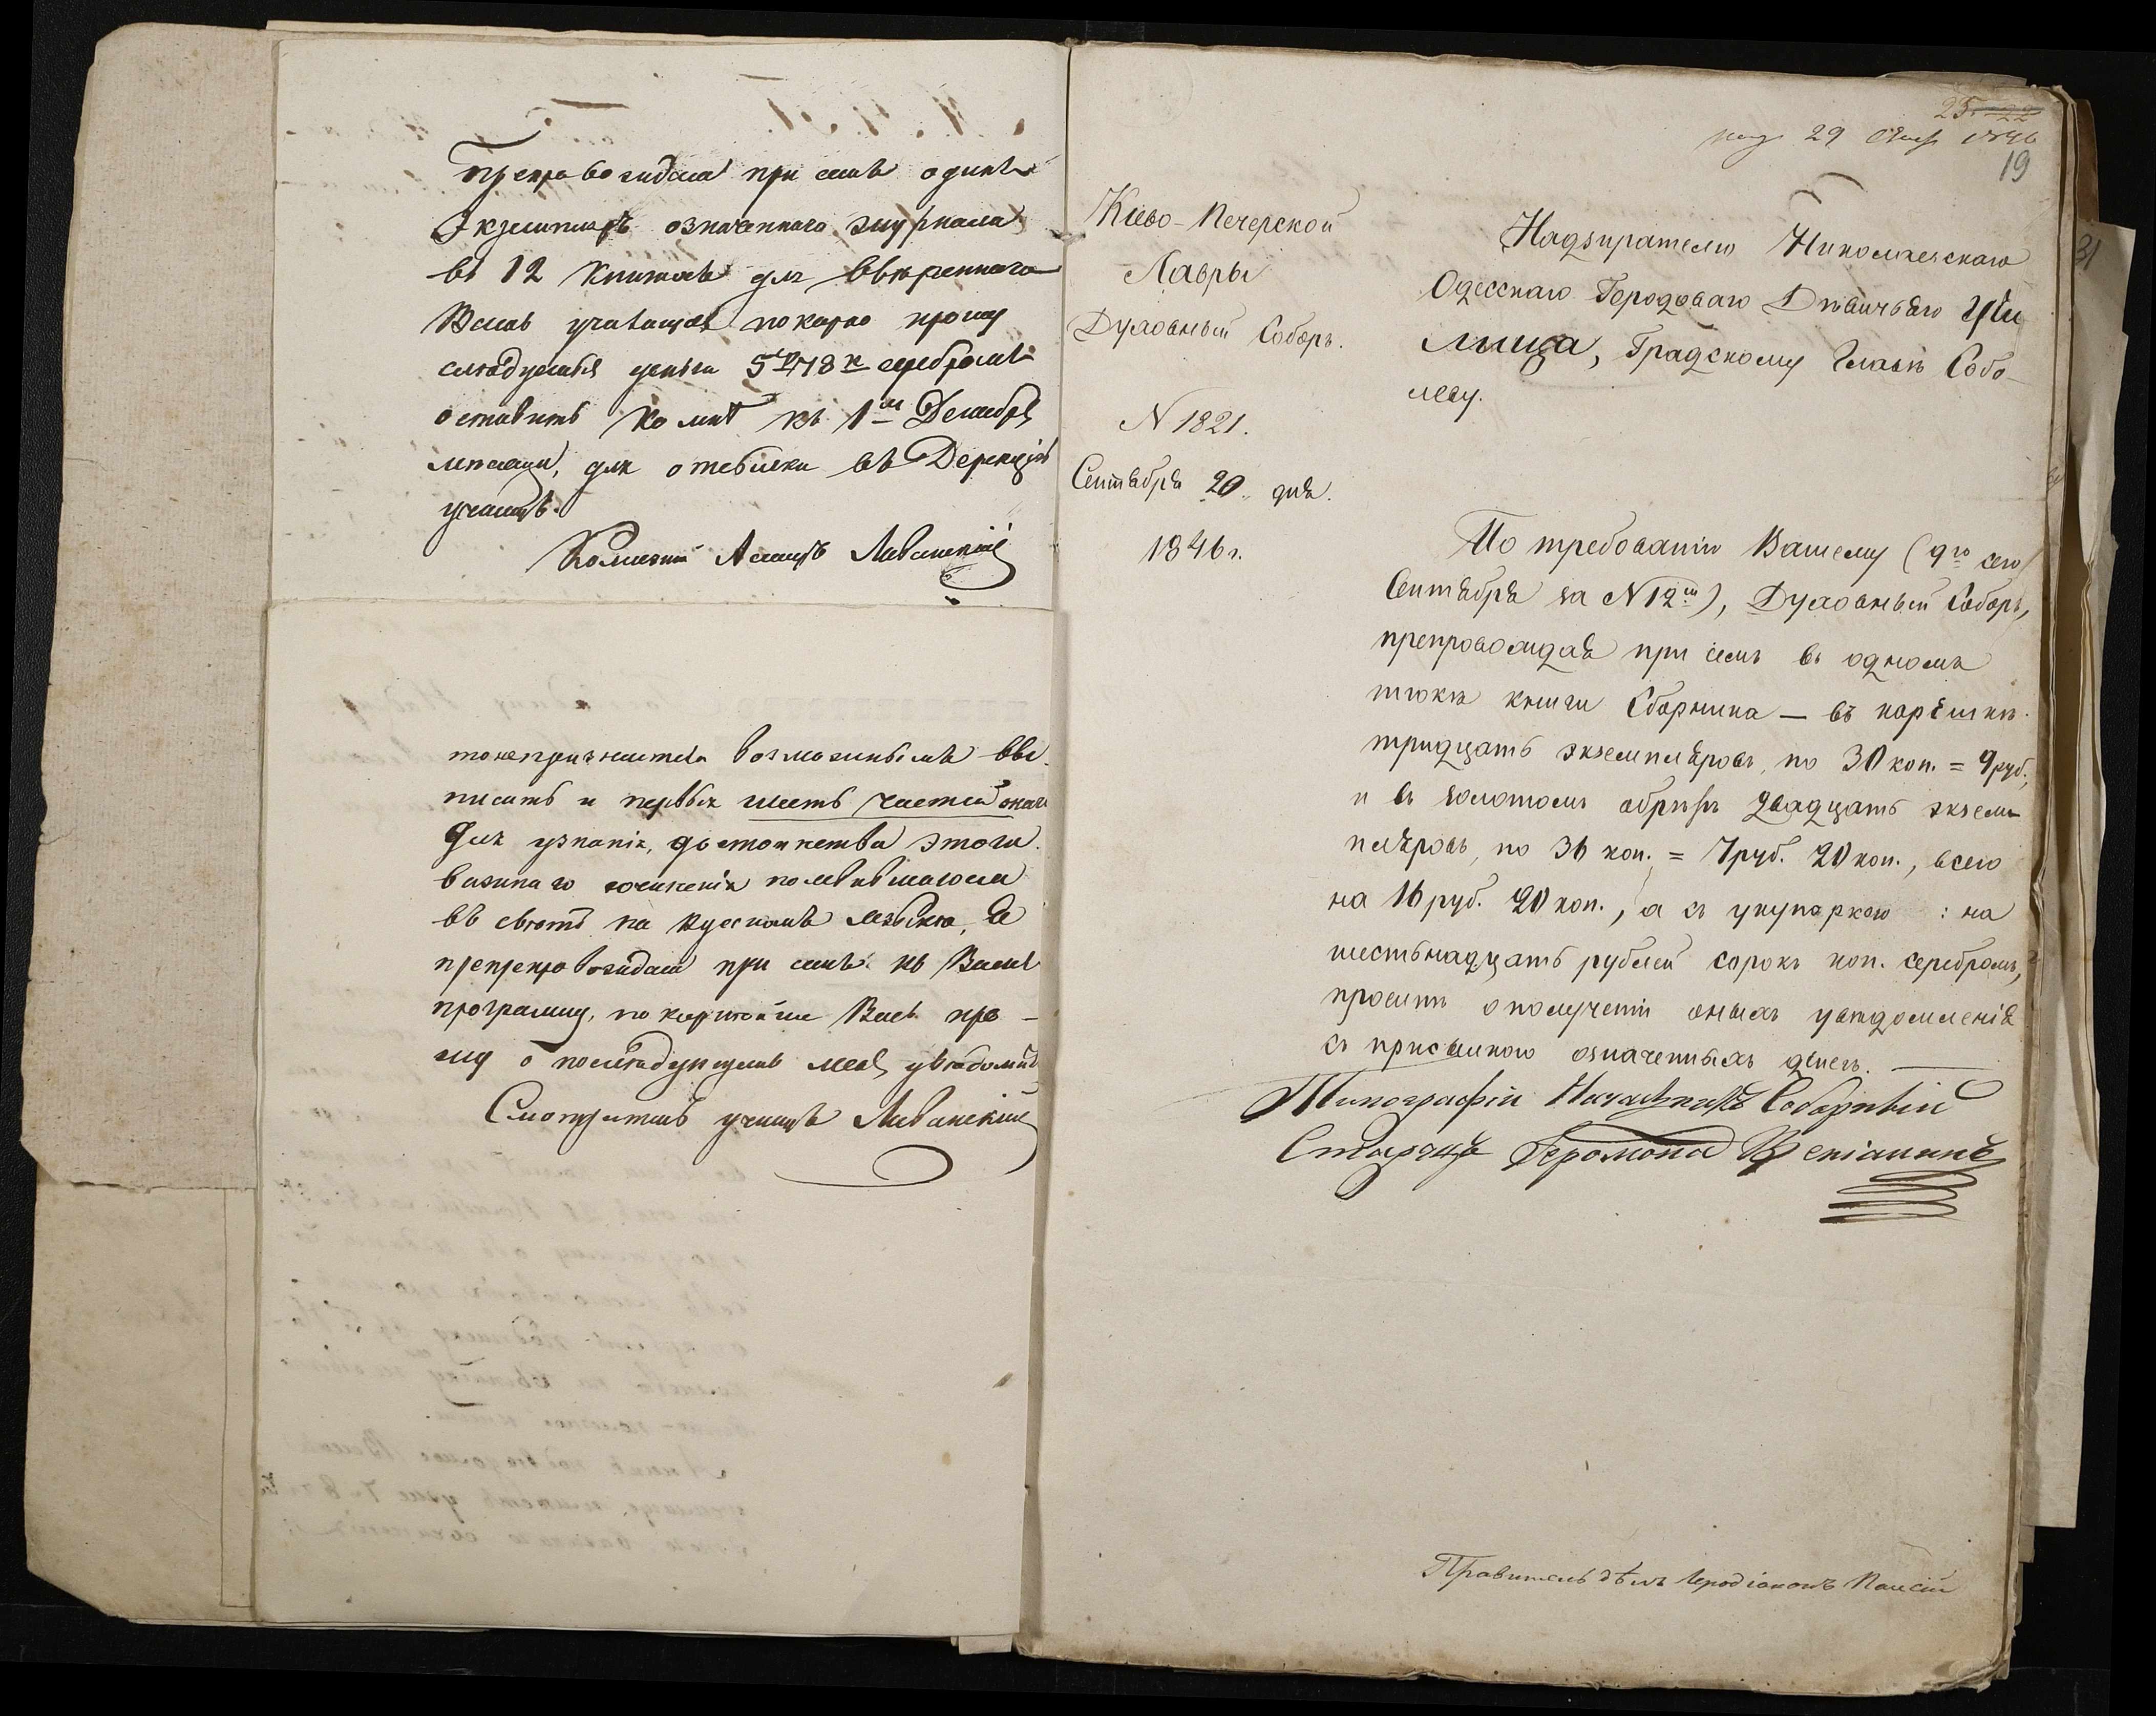 Препровождая при семъ одинъ
Экземпляръ означеннаго журнала
въ 12 книгахъ для ввѣреннаго
Вамъ училища покорно прошу
слѣдуемыя деньги 5 р 78 к серебромъ
оставить ко мнѣ къ 1му Декабря
мѣсяцу, для отсылки въ Дирекцію
училищъ.
Ливанскій
возможнымъ вы-
писать и первыя шесть частей онаго
Для узнанія достоинства этого
важнаго сочиненія появившагося
въ свѣтъ на Русскомъ языкѣ, я
препровождая при семъ къ Вамъ
программу, покорнѣйше Васъ про-
шу о послѣдующемъ меня увѣдомить
Смотритель училищъ Ливанскій
25 22
29 1846
19
31
Кіево-Печерской
Лавры
Духовный Соборъ.
N 1821.
Сентября 20 дня.
1846 г.
Надзирателю Николаевскаго
Одесскаго Городоваго Дѣвичьяго Учи
лища, Градскому Главѣ Собо-
леву.
По требованію Вашему (9го сего
Сентября за N 12м), Духовный Соборъ,
препровождая при семъ въ одномъ
тюкѣ книги Сборника — въ корешкѣ
тридцать экземпляровъ, по 30 коп. = 9 руб.,
и въ золотомъ обрѣзѣ двадцать экзем-
пляровъ, по 36 коп. = 7 руб. 20 коп., всего
на 16 руб. 20 коп., а съ укупоркою : на
шестьнадцать рублей сорокъ коп. серебромъ,
проситъ о полученіи оныхъ увѣдомленія
съ присылкою означенныхъ денегъ. —
Типографіи Начальникъ Соборный
Старецъ Іеромона Веніаминъ
Правитель дѣлъ Іеродіаконъ Паисій